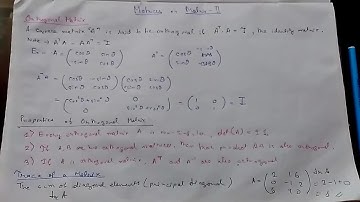 Matrices or Matrix-II
Orthogonal Matrix
A square matrix "A" is said to be orthogonal if A'. A = I, the identity matrix,
A'A = AA' = I
Ex:- A = ( cosθ sinθ
-sinθ cosθ ) A' = ( cosθ -sinθ
sinθ cosθ )
A'A = ( cosθ -sinθ ( cosθ sinθ
sinθ cosθ ) -sinθ cosθ )
= ( cos²θ + sin²θ 0
0 sin²θ + cos²θ ) = ( 1 0
0 1 ) = I
Properties of Orthogonal Matrix
1) Every orthogonal matrix A is non-sing, i.e., det(A) = ±1
2) If A, B are two orthogonal matrices, then their product AB is also orthogonal.
3) If A is orthogonal matrix, Aᵀ and A⁻¹ are also orthogonal
Trace of a Matrix
The sum of diagonal elements (principal diagonal)
in A